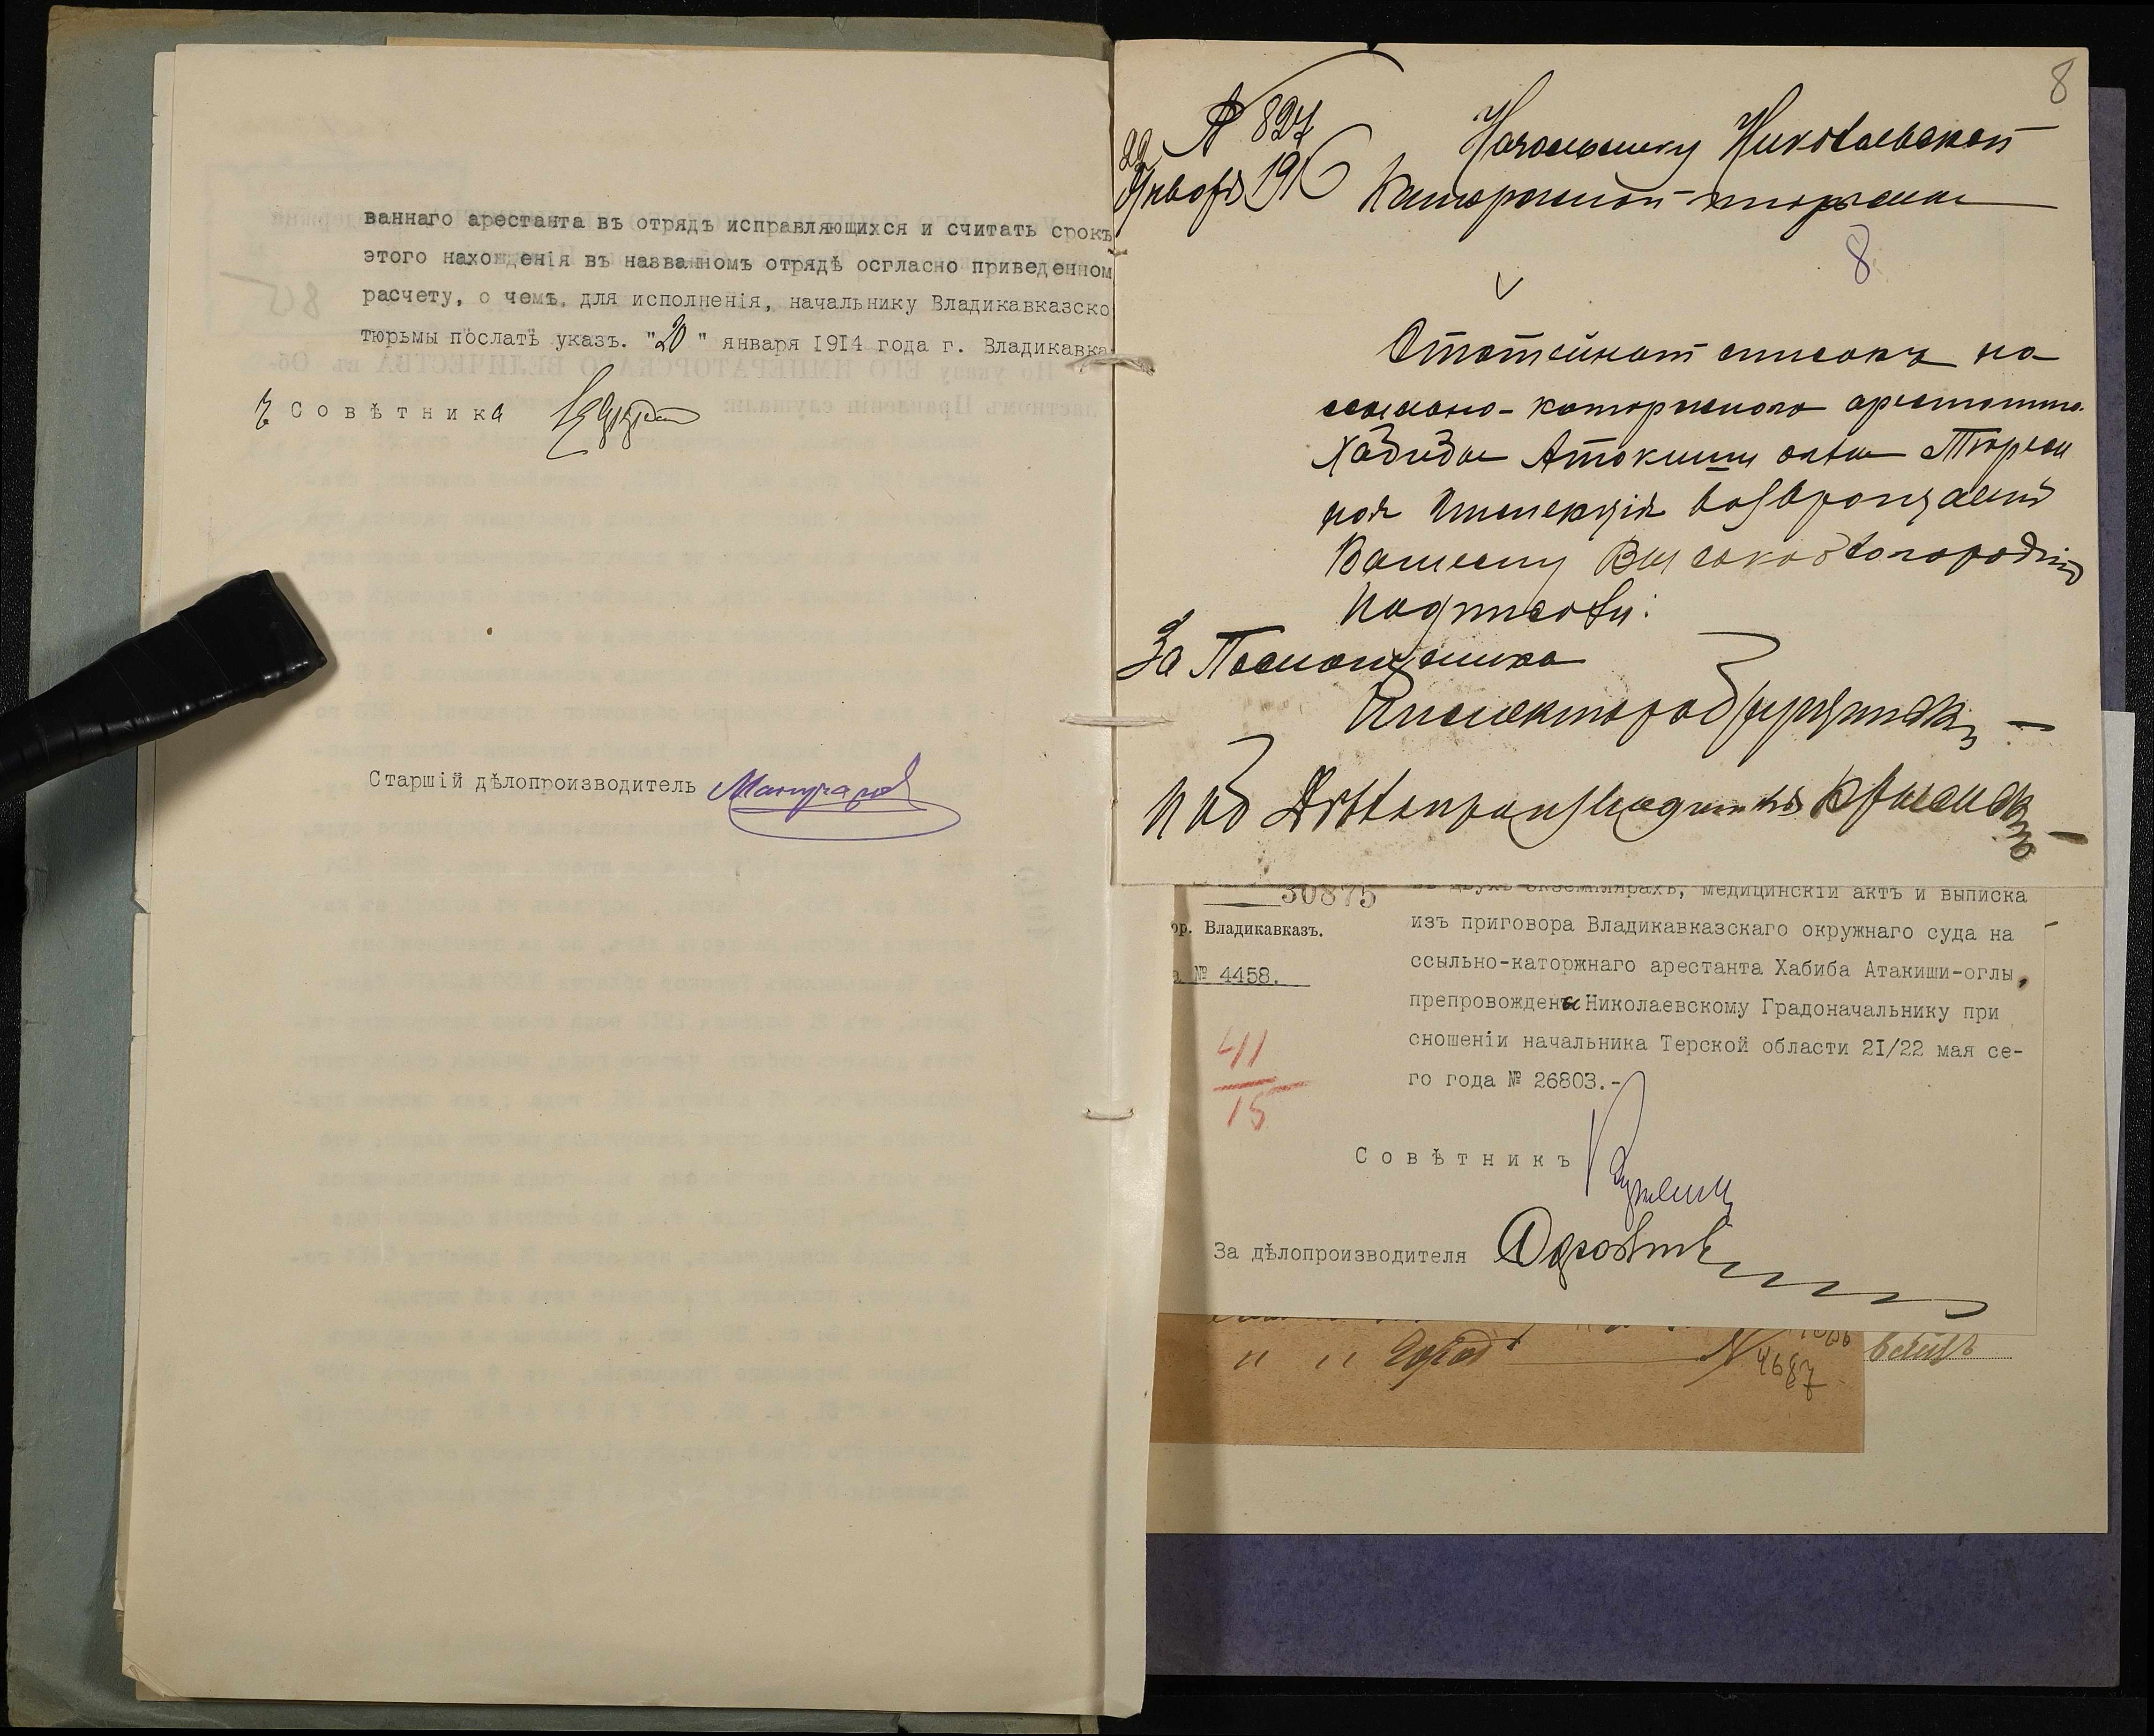 ваннаго арестанта въ отрядъ исправляющихся и считать срокъ
этого нахожденія въ названномъ отрядѣ осгласно приведенном
расчету, о чемъ, для исполненія, начальнику Владикавказско
тюрьмы послать указъ. "20" января 1914 года г. Владикавка
Совѣтника
Старшій дѣлопроизводитель
8
№ 827
22 Января 1916
Начальнику Николаевской
Каторжной тюрьмы
8
Статейный списокъ на
ссыльно-каторжного арестанта
Хабиба Атакиши оглы Тюрем
ная Инспекція возвращаетъ
Вашему Высокоблагородію
Подписали:
За Помощника
Инспектора
и за Дѣлопроизводителя
30875
въ двухъ экземплярахъ, медицинскій актъ и выписка
ор. Владикавказъ.
изъ приговора Владикавказскаго окружнаго суда на
№ 4458.
ссыльно-каторжнаго арестанта Хабиба Атакиши-оглы,
препровождены Николаевскому Градоначальнику при
сношеніи начальника Терской области 21/22 мая се-
го года № 26803.-
41
15
Совѣтникъ
За дѣлопроизводителя
" " Город
№ 4687